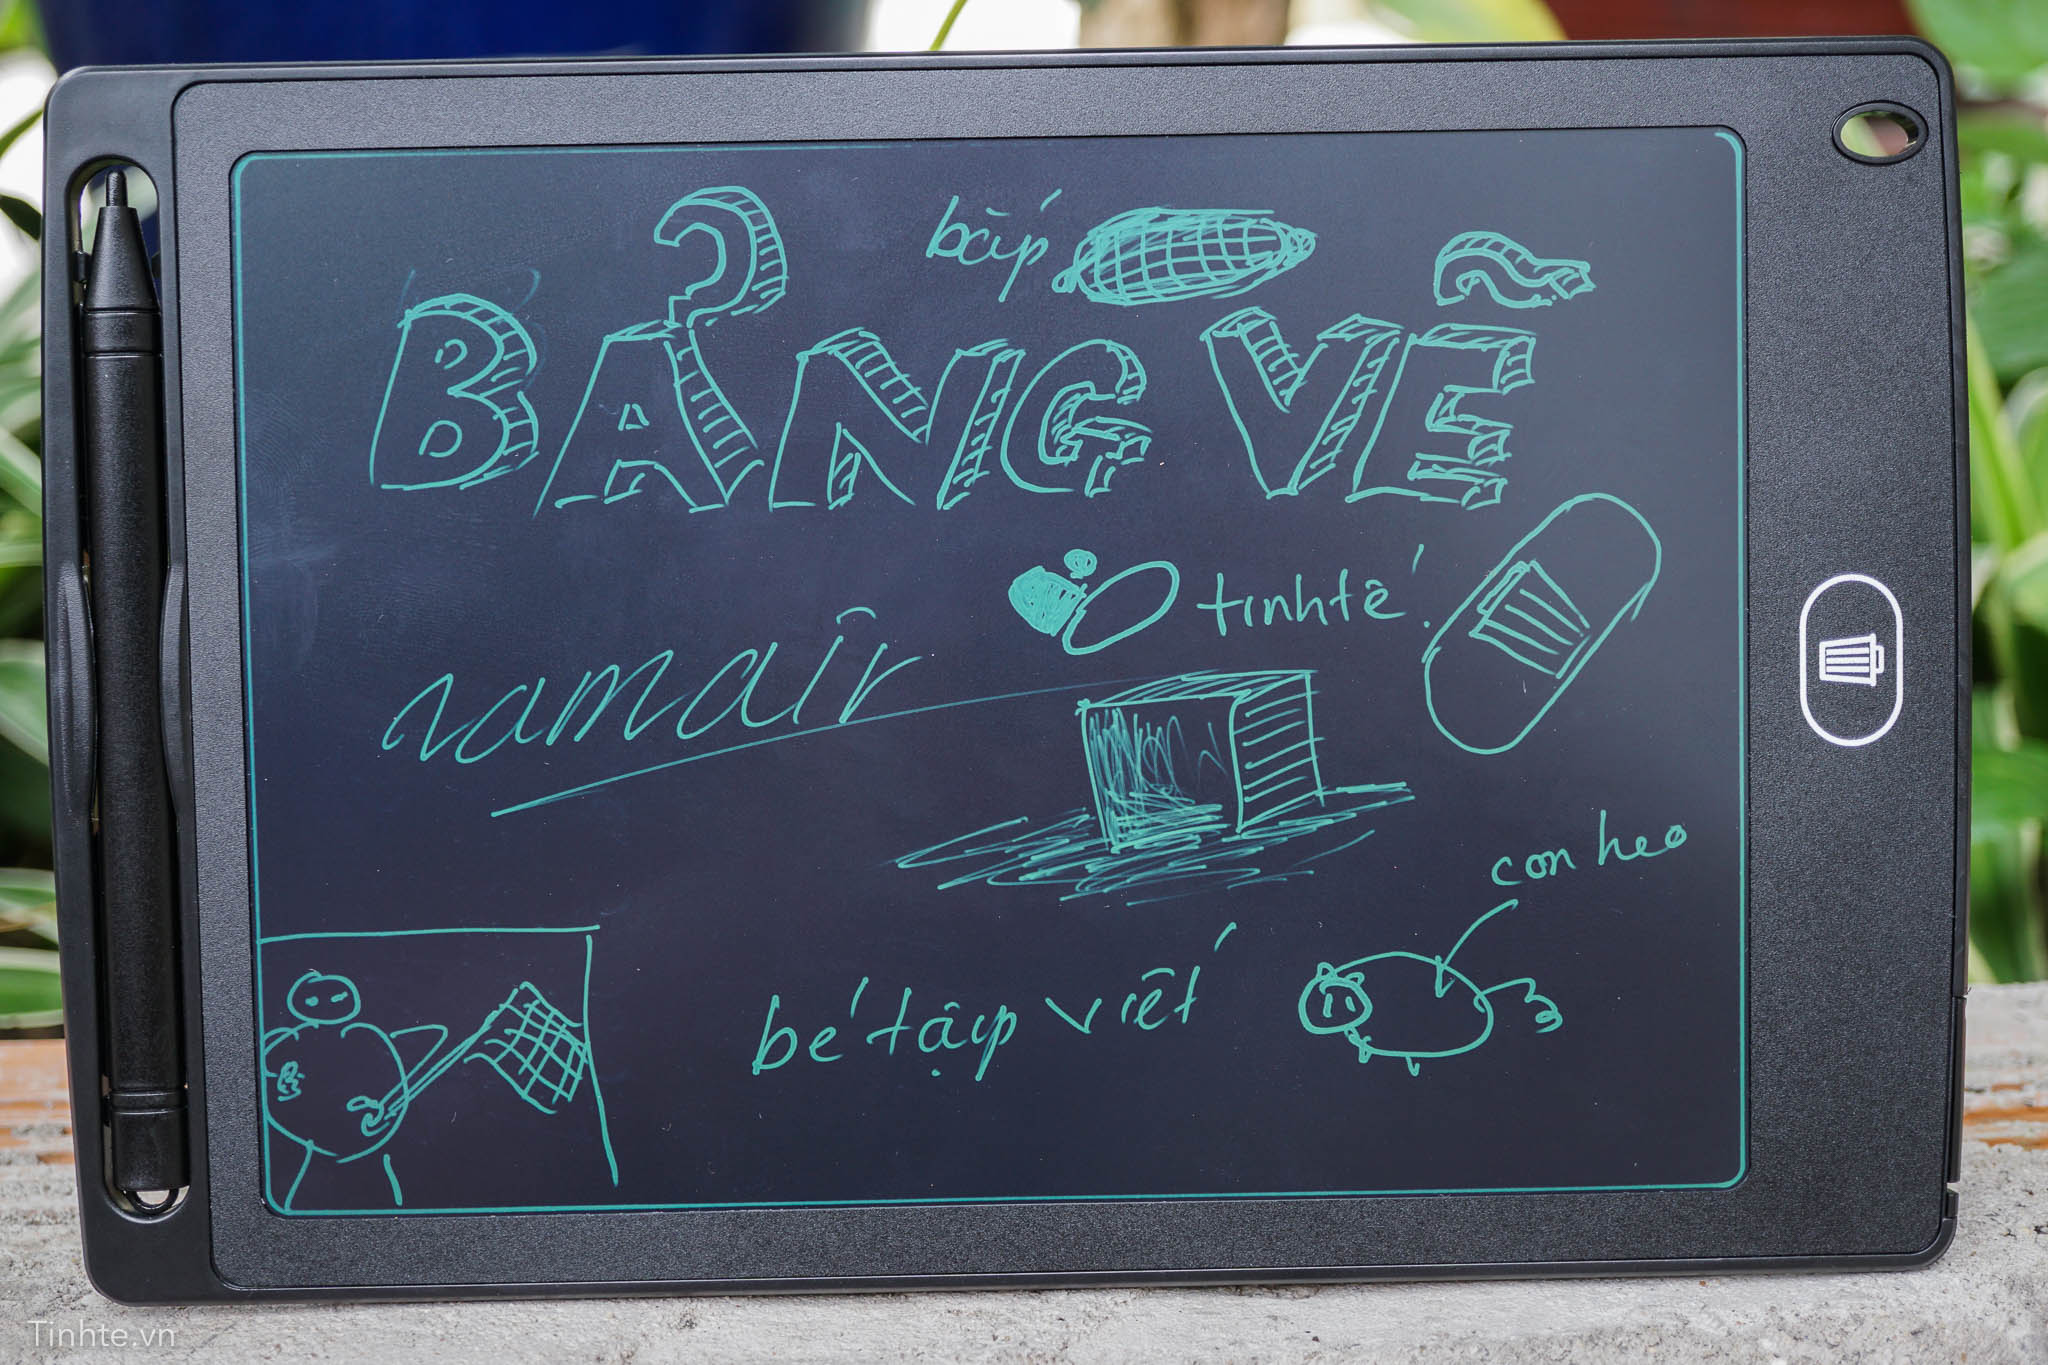 bắp
BẢNG VẼ
tinhtế
namair
con heo
bé tập viết
Tinhte.vn